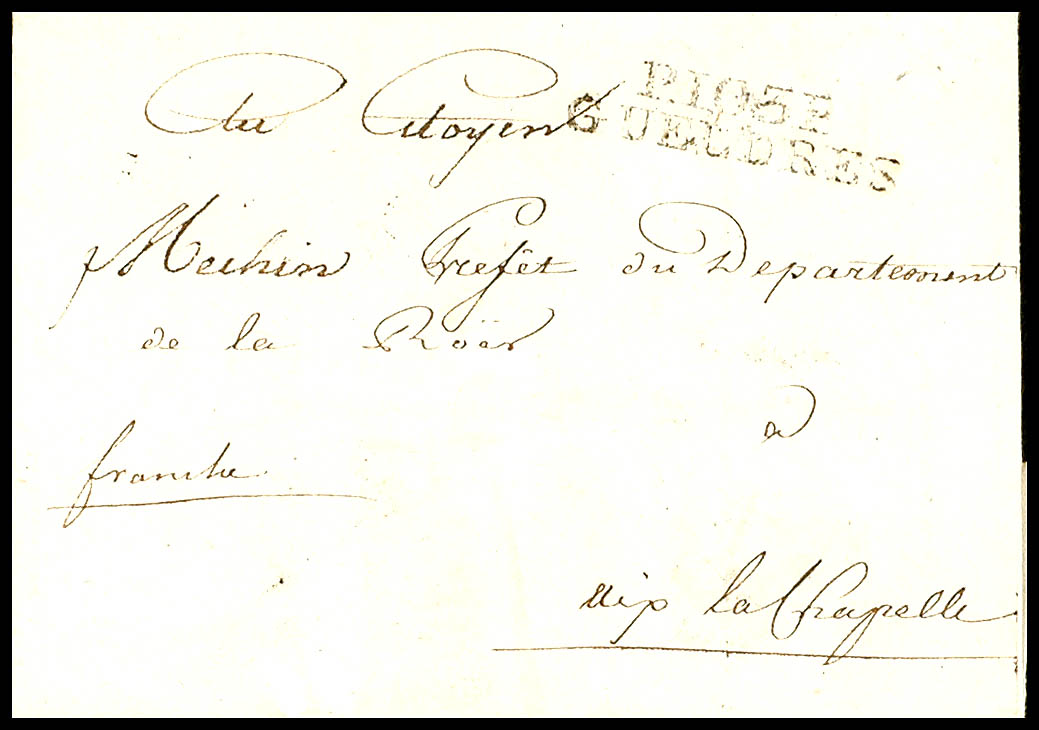 au Citoyen
P.103.P.
GUELDRES
Mechin Prefêt du Departement
de la Roër
a
franche
aix la Chapelle